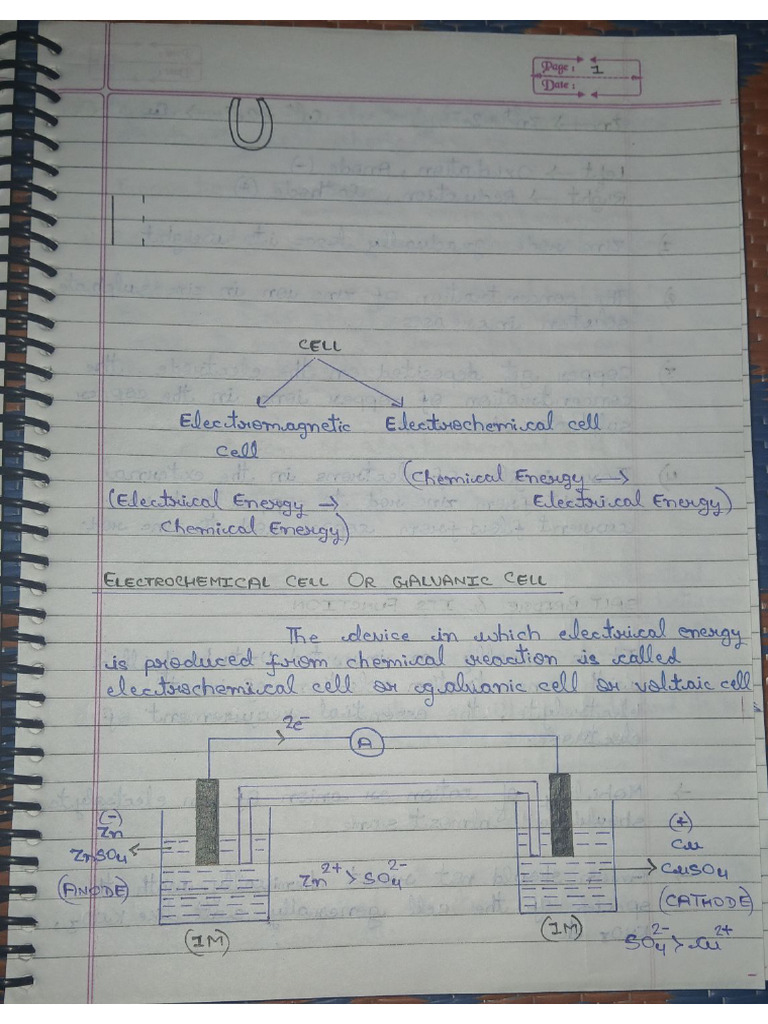 Page: 1
Date:
CELL
Electromagnetic Electrochemical cell
cell
(Chemical Energy →
(Electrical Energy → Electrical Energy)
Chemical Energy)
ELECTROCHEMICAL CELL OR GALVANIC CELL
The device in which electrical energy
is produced from chemical reaction is called
electrochemical cell or galvanic cell or voltaic cell
2e⁻
A
(-)
Zn
ZnSO₄
(ANODE)
Zn²⁺ > SO₄²⁻
(+)
Cu
CuSO₄
(CATHODE)
(1M) (1M)
SO₄²⁻ > Cu²⁺